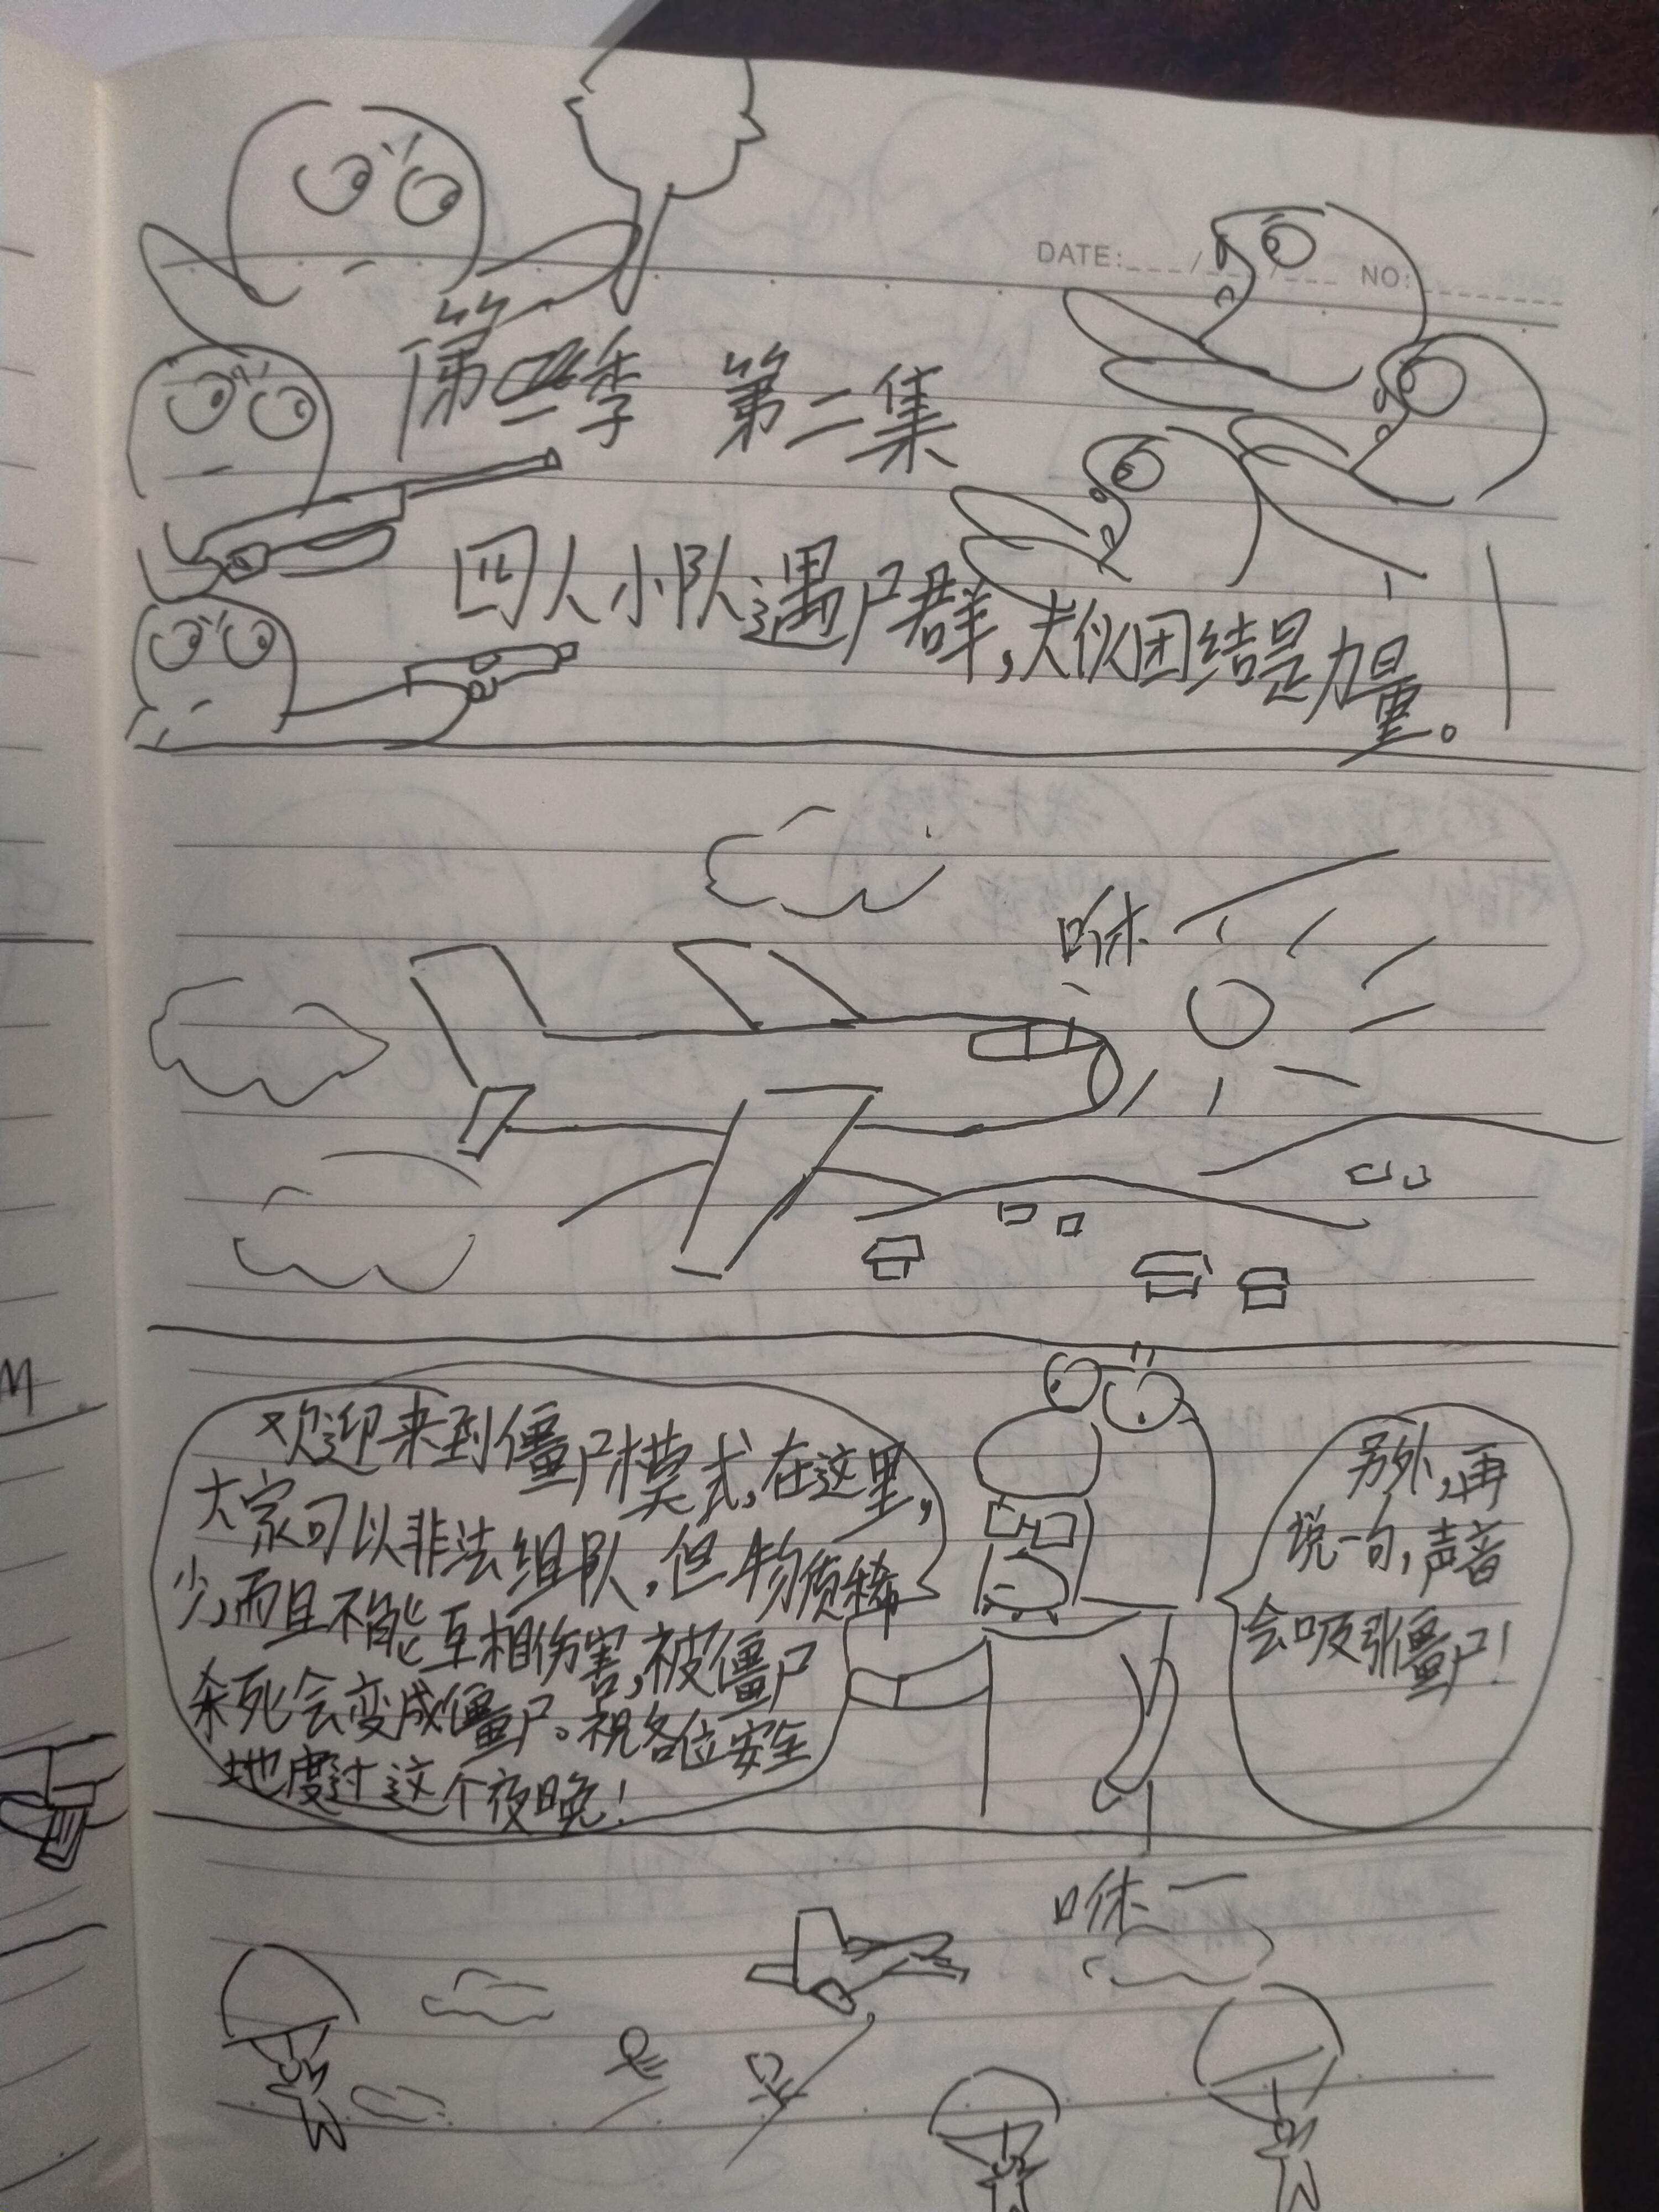 DATE:___/___/___ NO:________
第二季 第二集
四人小队遇尸群,大伙团结是力量。
咻
欢迎来到僵尸模式,在这里,
大家可以非法组队,但物资稀
少,而且不能互相伤害,被僵尸
杀死会变成僵尸。祝各位安全
地度过这个夜晚!
另外,再
说一句,声音
会吸引僵尸!
咻
M